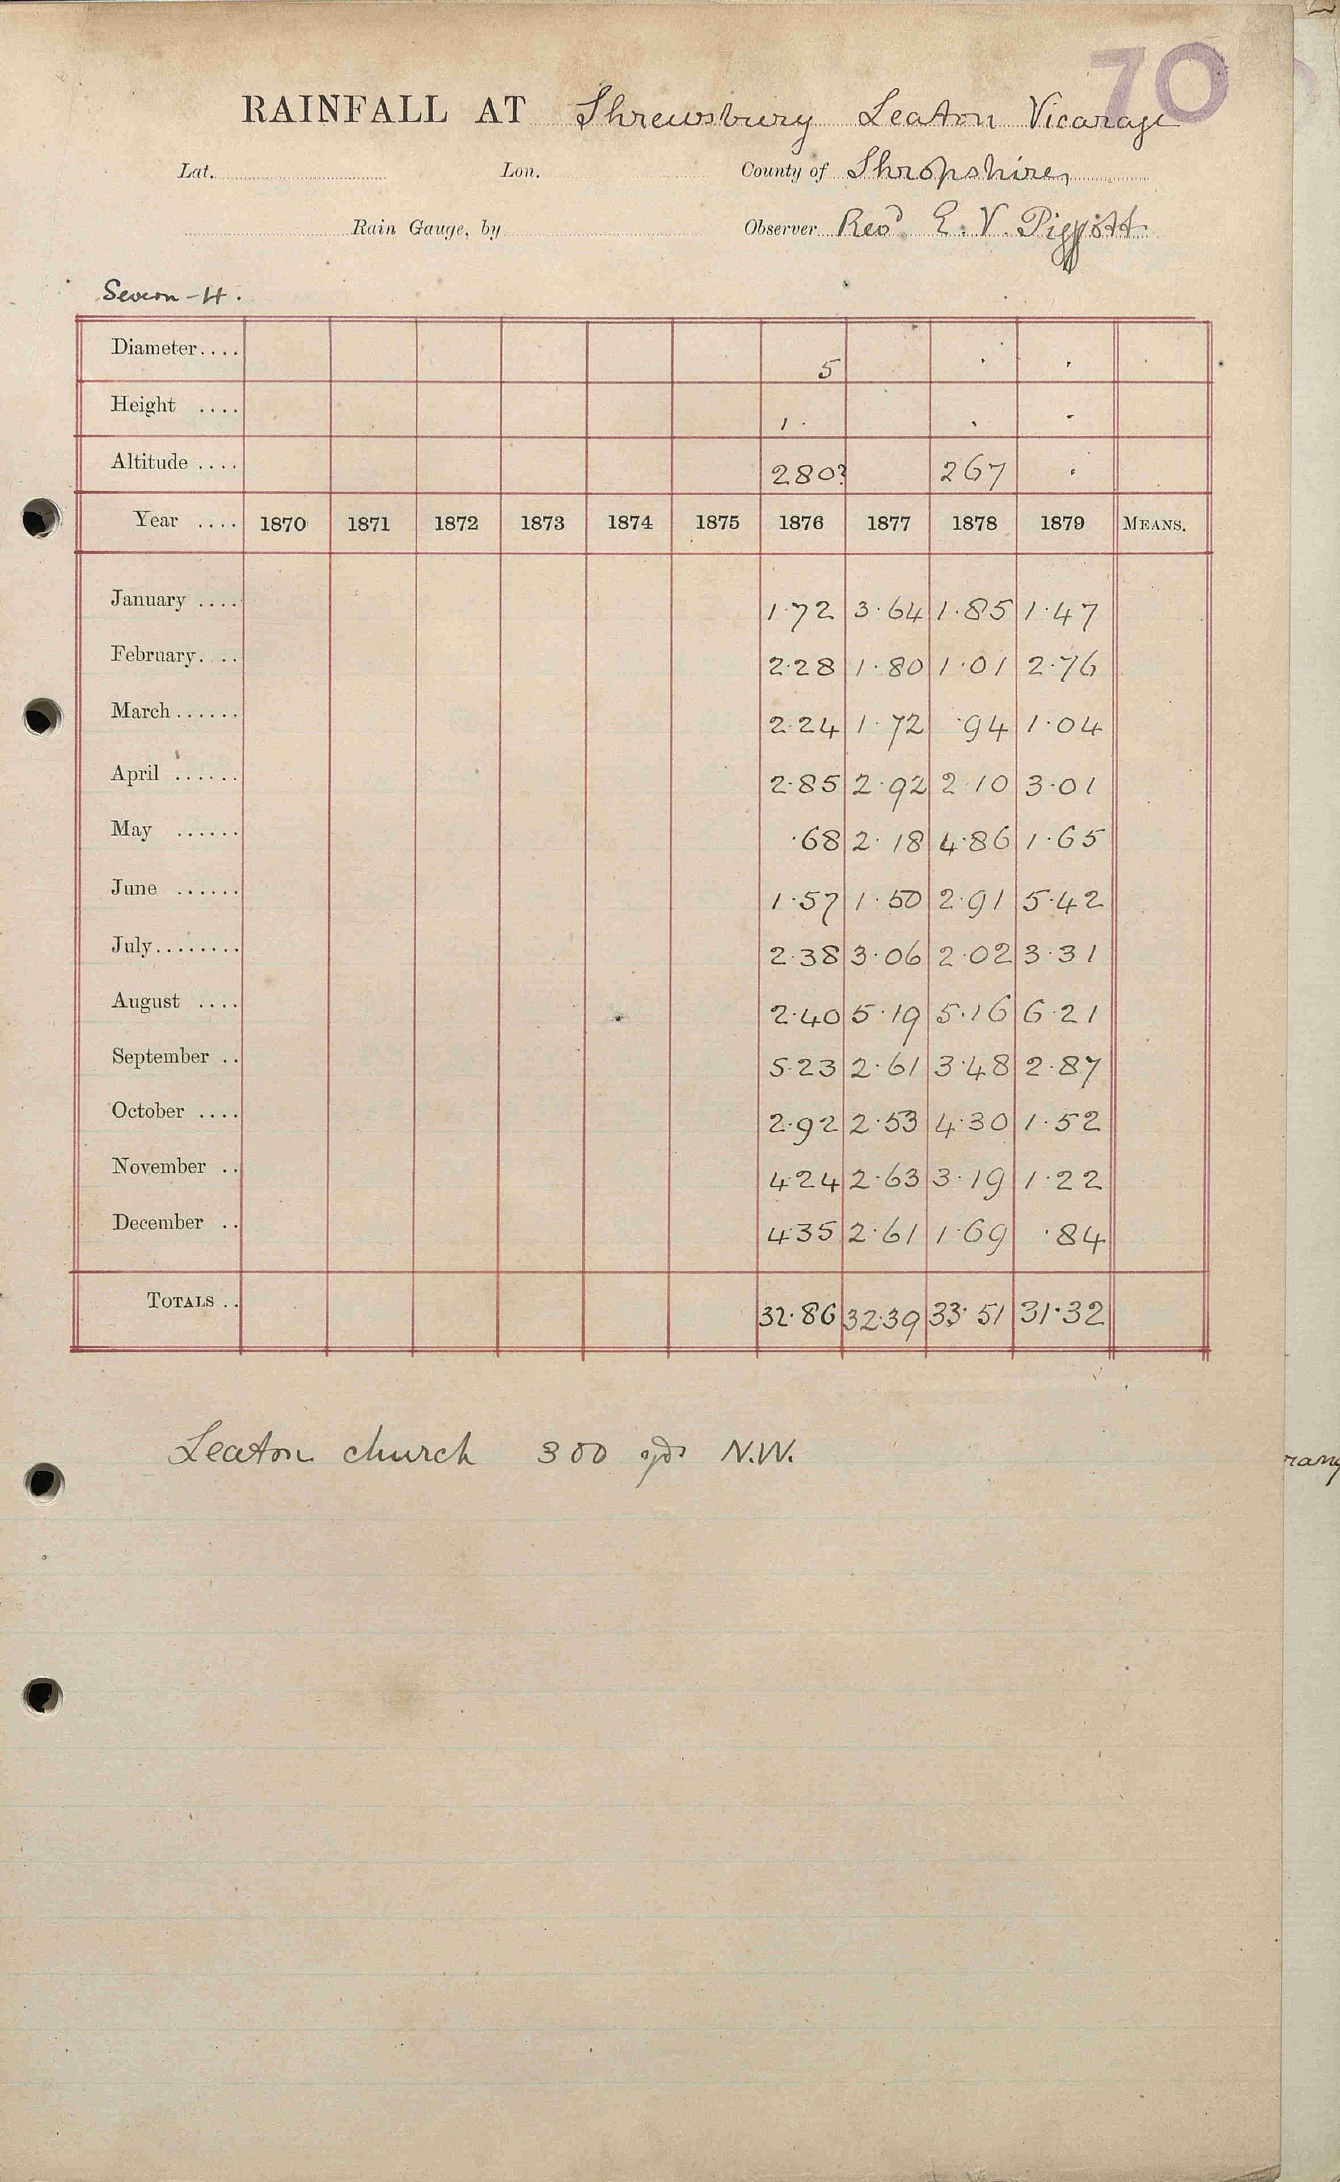 70
RAINFALL AT Shrewsbury Leaton Vicarage
Lat. Lon. County of Shropshire
Rain Gauge, by Observer Revd. E. V. Piggott
Severn - H.
Diameter.... 5
Height .... 1
Altitude .... 280? 267
Year .... 1870 1871 1872 1873 1874 1875 1876 1877 1878 1879 MEANS.
January .... 1.72 3.64 1.85 1.47
February.... 2.28 1.80 1.01 2.76
March ...... 2.24 1.72 .94 1.04
April ...... 2.85 2.92 2.10 3.01
May ...... .68 2.18 4.86 1.65
June ...... 1.57 1.50 2.91 5.42
July........ 2.38 3.06 2.02 3.31
August .... 2.40 5.19 5.16 6.21
September .. 5.23 2.61 3.48 2.87
October .... 2.92 2.53 4.30 1.52
November .. 4.24 2.63 3.19 1.22
December .. 4.35 2.61 1.69 .84
TOTALS .. 32.86 32.39 33.51 31.32
Leaton church 300 yds N.W.